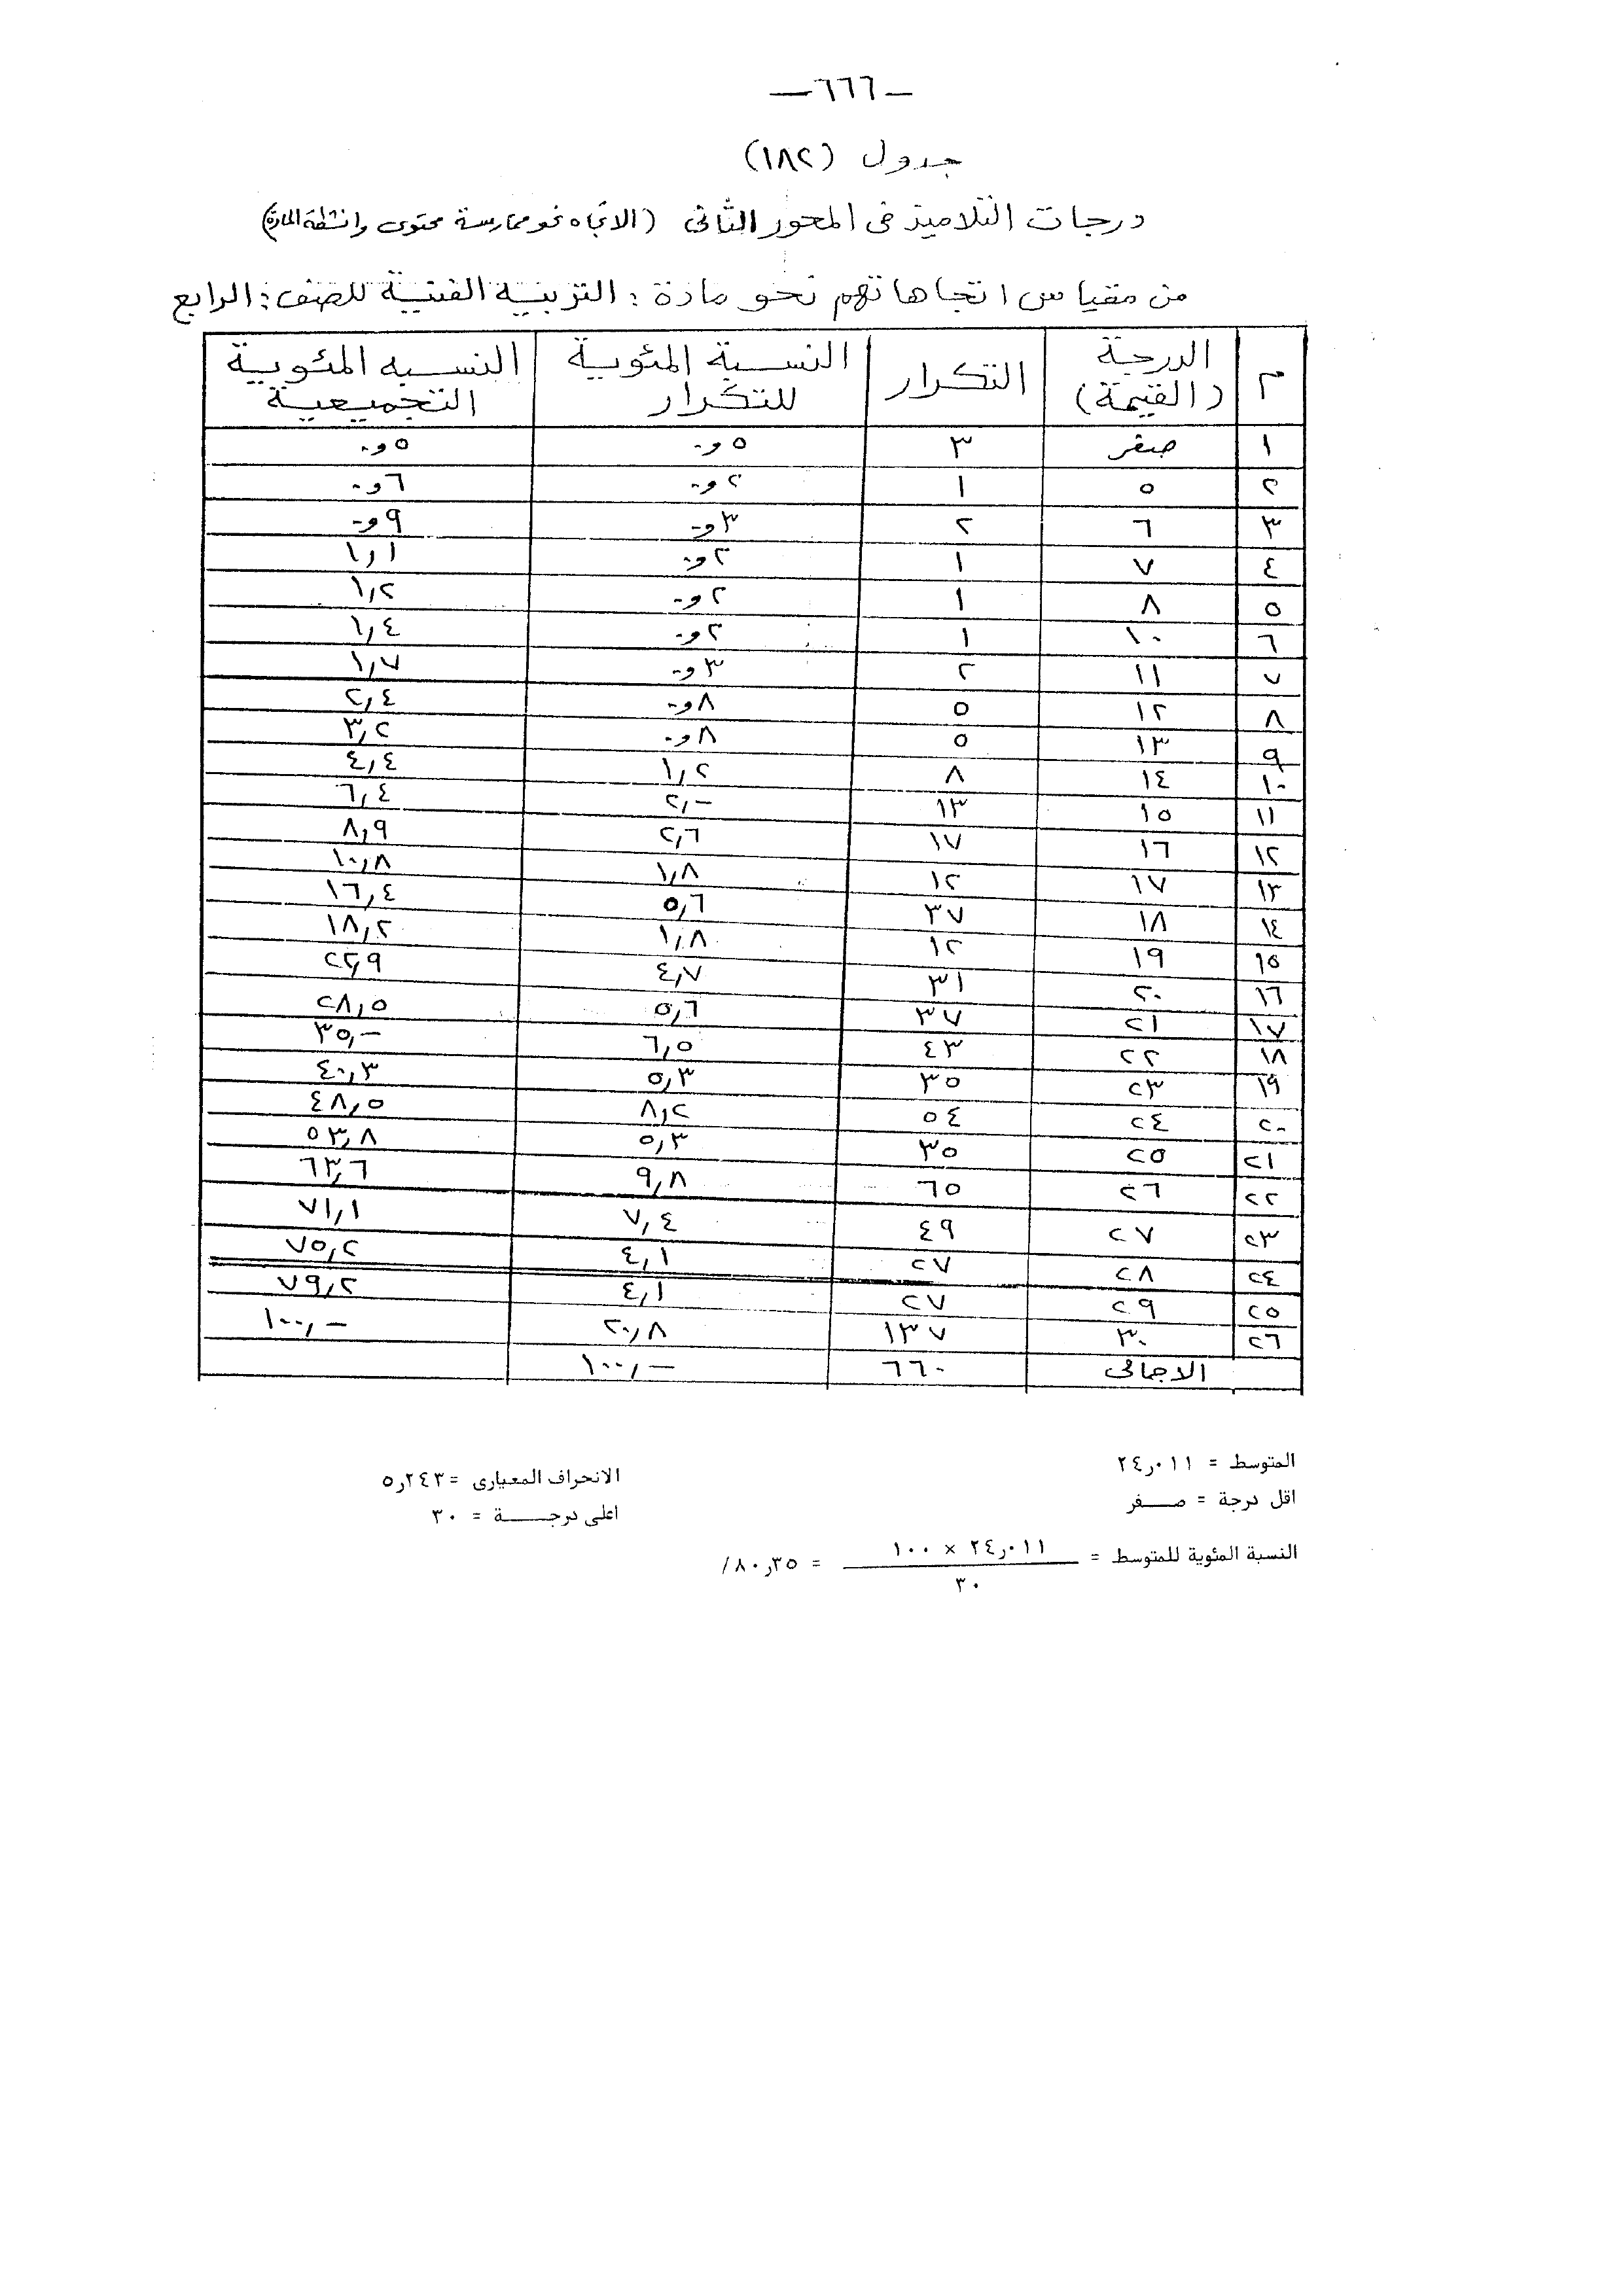 ـ ٦٦٦ ـ
جدول (١٨٢)
درجات التلاميذ فى المحور الثانى (الاتجاه نحو ممارسة محتوى وانشطة المادة)
من مقياس اتجاهاتهم نحو مادة : التربية الفنية للصف : الرابع
م الدرجة (القيمة) التكرار النسبة المئوية للتكرار النسبه المئوية التجميعية
١ صفر ٣ ٥و٠ ٥و٠
٢ ٥ ١ ٢و٠ ٦و٠
٣ ٦ ٢ ٣و٠ ٩و٠
٤ ٧ ١ ٢و٠ ١,١
٥ ٨ ١ ٢و٠ ١,٢
٦ ١٠ ١ ٢و٠ ١,٤
٧ ١١ ٢ ٣و٠ ١,٧
٨ ١٢ ٥ ٨و٠ ٢,٤
٩ ١٣ ٥ ٨و٠ ٣,٢
١٠ ١٤ ٨ ١,٢ ٤,٤
١١ ١٥ ١٣ ٢,- ٦,٤
١٢ ١٦ ١٧ ٢,٦ ٨,٩
١٣ ١٧ ١٢ ١,٨ ١٠,٨
١٤ ١٨ ٣٧ ٥,٦ ١٦,٤
١٥ ١٩ ١٢ ١,٨ ١٨,٢
١٦ ٢٠ ٣١ ٤,٧ ٢٢,٩
١٧ ٢١ ٣٧ ٥,٦ ٢٨,٥
١٨ ٢٢ ٤٣ ٦,٥ ٣٥,-
١٩ ٢٣ ٣٥ ٥,٣ ٤٠,٣
٢٠ ٢٤ ٥٤ ٨,٢ ٤٨,٥
٢١ ٢٥ ٣٥ ٥,٣ ٥٣,٨
٢٢ ٢٦ ٦٥ ٩,٨ ٦٣,٦
٢٣ ٢٧ ٤٩ ٧,٤ ٧١,١
٢٤ ٢٨ ٢٧ ٤,١ ٧٥,٢
٢٥ ٢٩ ٢٧ ٤,١ ٧٩,٢
٢٦ ٣٠ ١٣٧ ٢٠,٨ ١٠٠,-
الاجمالى ٦٦٠ ١٠٠,-
المتوسط = ٠١١ر٢٤ الانحراف المعيارى = ٢٤٣ر٥
اقل درجة = صفر اعلى درجة = ٣٠
النسبة المئوية للمتوسط = ٠١١ر٢٤ × ١٠٠ = ٣٥ر٨٠/
٣٠